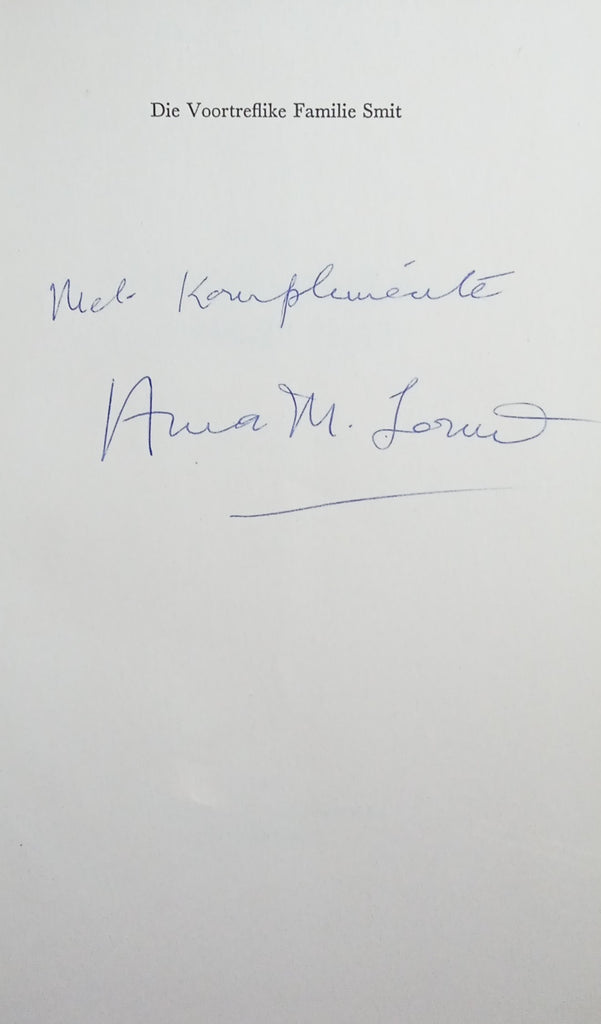 Die Voortreflike Familie Smit
Met Komplimente
Anna M. Louw